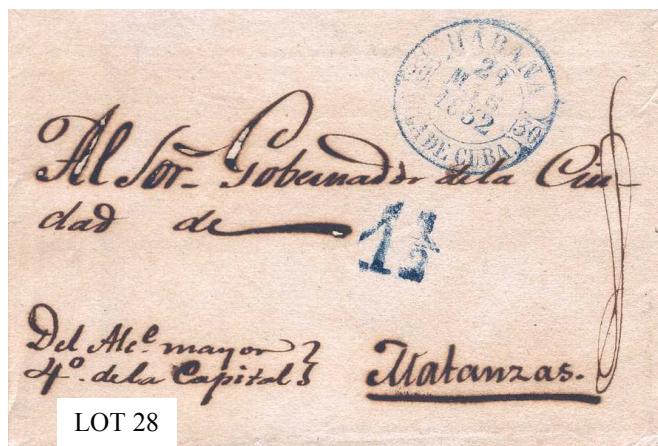 HABANA
28
1852
YLA DE CUBA
30
Al Sor. Gobernador de la Ciu-
dad de
1½
Del Alce. mayor
4º. de la Capital
Matanzas.
LOT 28